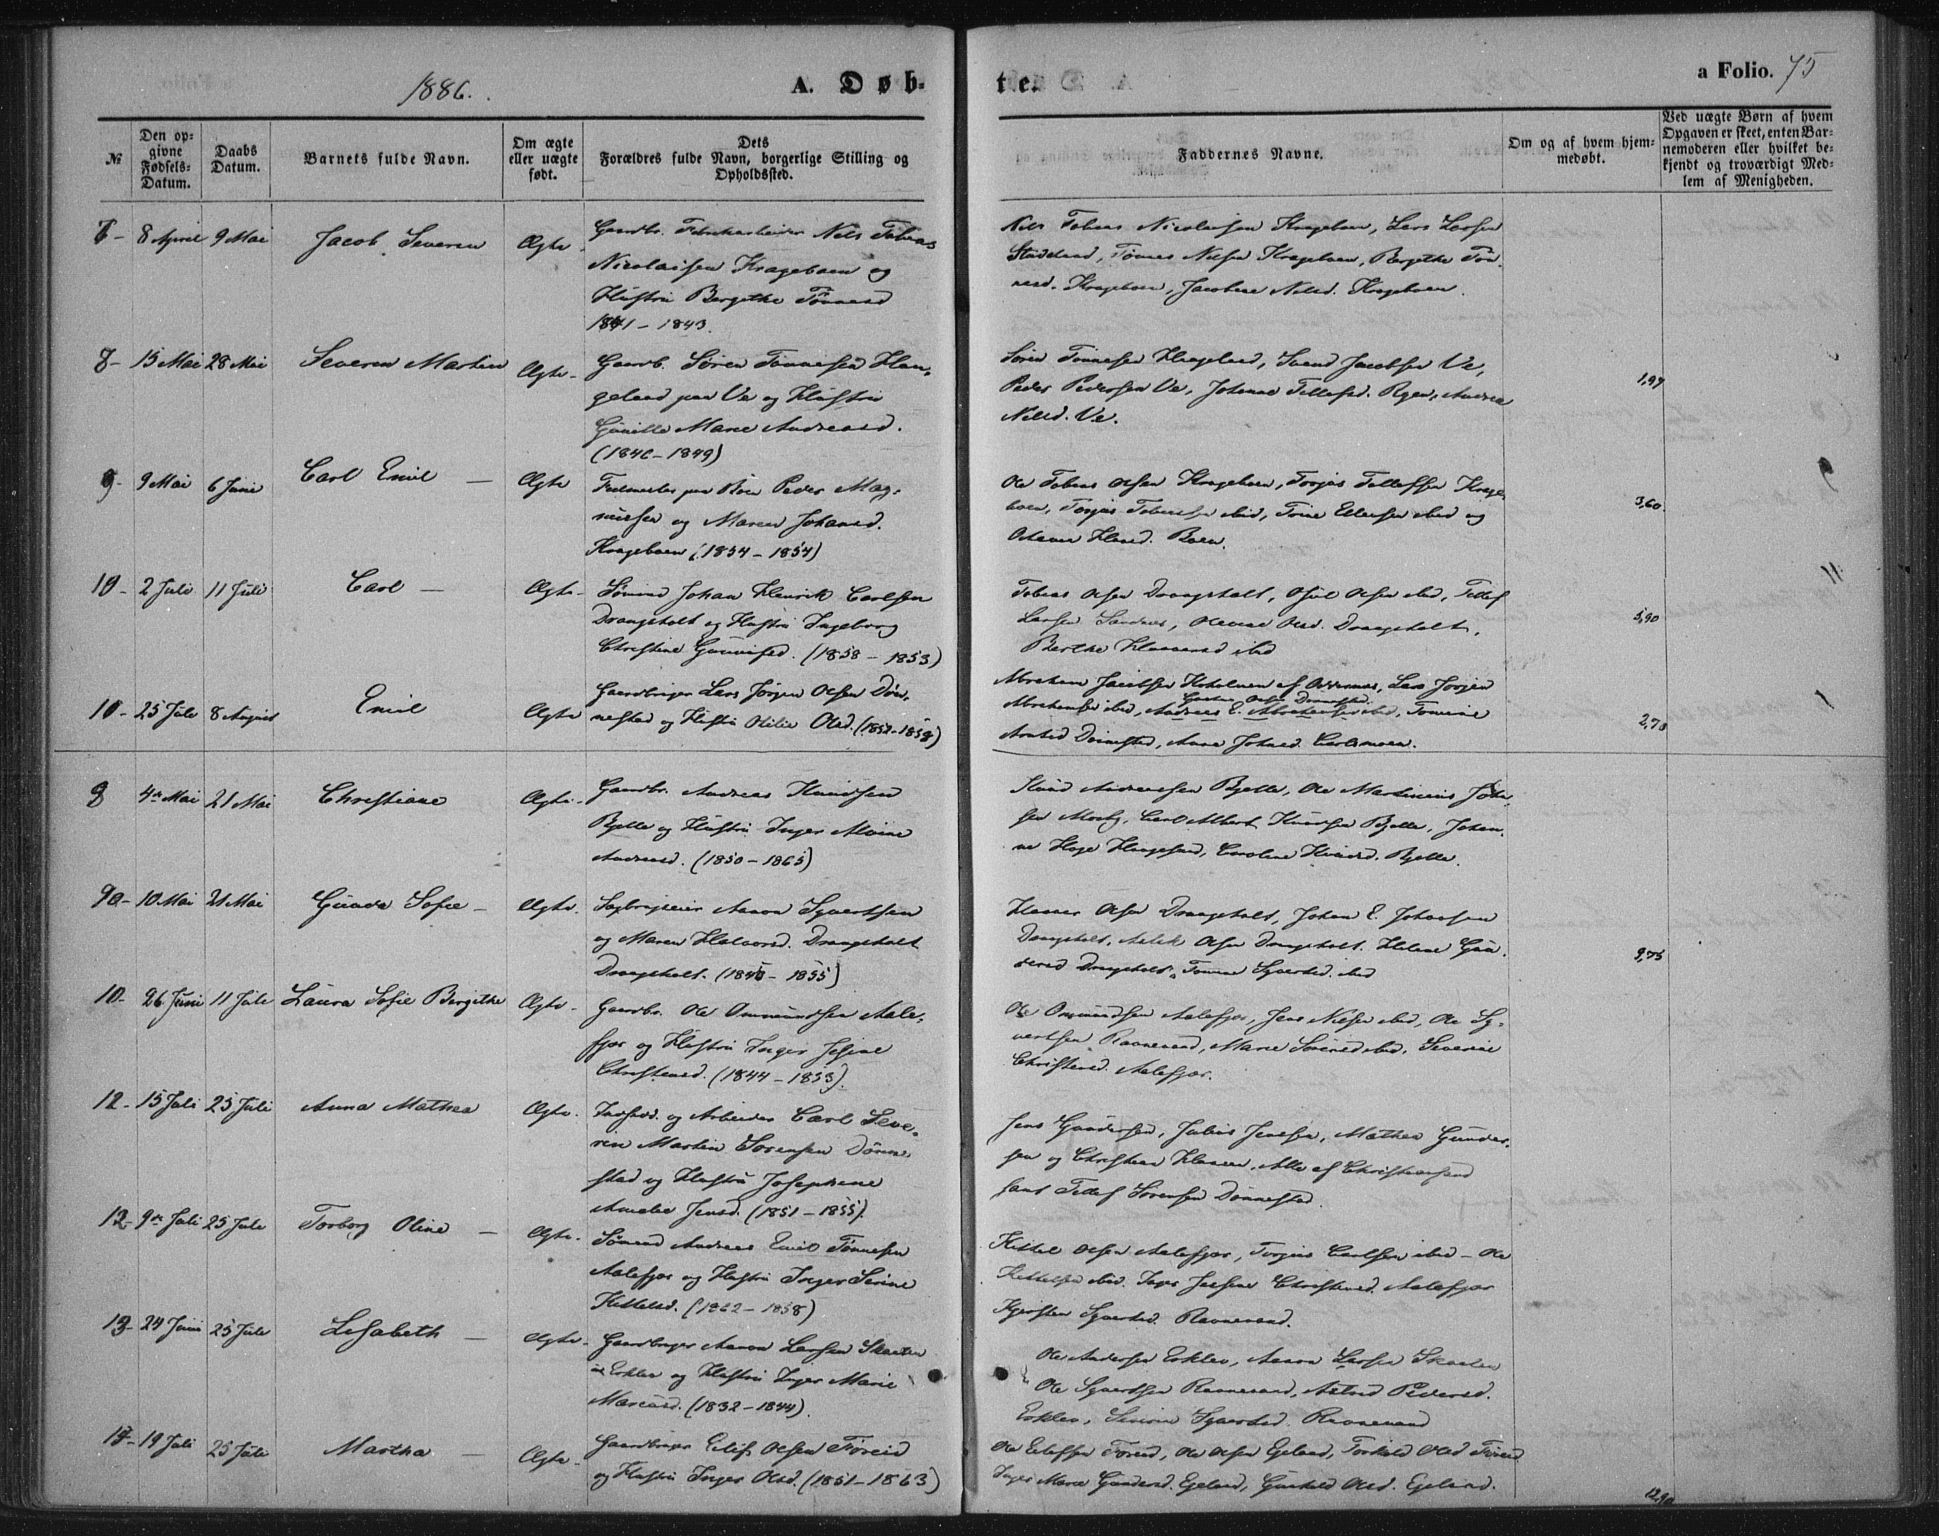 1886.
A. Døb-
te.
a Folio. 75
№
Den opgivne Fødsels-Datum.
Daabs Datum.
Barnets fulde Navn.
Om ægte eller uægte født.
Dets Forældres fulde Navn, borgerlige Stilling og Opholdssted.
Faddernes Navne.
Om og af hvem hjemmedøbt.
Ved uægte Børn af hvem Opgaven er skeet, enten Barnemoderen eller hvilket bekjendt og troværdigt Medlem af Menigheden.
8 April 9 Mai Jacob Severin Ægte Gaardbr. Nils Tobias
Nicolaisen Krageboen og
Hustru Bergithe Tønnesd
1841 - 1843.
Nils Tobias Nicolaisen Krageboen, Lars Larsen
Tønnes Nilsen Krageboen, Bergithe Tøn-
nesd. Krageboen, Jacobine Nilsd. Krageboen.
8- 15 Mai 28 Mai Severin Martin Ægte- Gaardb. Søren Tønnesen Hau-
geland paa Ve og Hustru
Gunille Marie Andreasd.
(1840 - 1849)
Søren Tønnesen Haugeland, Svend Jacobsen Ve,
Peder Pedersen Ve, Johanne Tellefsd. Ryen, Andrea
Nilsd. Ve.
1,97
9- 9 Mai 6 Juni Carl Emil - Ægte paa Boen Peder Mag-
nussen og Maren Johansd.
Krageboen (1854 - 1854)
Ole Tobias Olsen Krageboen, Torjus Tellefsen Krage-
boen, Torjus Tobiassen ibid, Trine Ellefsen ibid og
Boen.
3,60
10- 2 Juli 11 Juli Carl - Ægte- Sømand Johan Henrik Carlsen
Drangsholt og Hustru Ingeborg
Christine (1858 - 1853)
Tobias Olsen Drangsholt, Osul Olsen ibid, Tellef
Larsen Olsd. Drangsholt,
Berthe ibid
5,90
10- 25 Juli 8 August Emil Ægte Gaardbruger Lars Jørgen Olsen Døn-
nestad og Hustru Otilie Olsd. (1852-1858)
Abraham Jacobsen af Oddernes, Lars Jørgen
Abrahamsen ibid, Andreas E. Abrahamsen ibid, Tomine
Olsen Drangsholt
Dønnestad, Anne Johnsd.
2,70
8 4de Mai 21 Mai Christiane Ægte- Gaardbr. Andreas Knudsen
Bjelle og Hustru Inger Alvine
Andreasd. (1850 - 1865)
Knud Andreassen Bjelle, Ole Martinius Joh-
sen Moseby, Carl Albert Knudsen Bjelle, Johan-
ne Caroline Knudsd. Bjelle.
9- 10 Mai 21 Mai Gunda Sofie - Ægte. Aanon Syvertsen
og Maren Halvorsd. Drangsholt
Drangsholt. (1840 - 1855)
Olsen Drangsholt, Johan E. Johansen
Drangsholt, Aslak Olsen Drangsholt, Helene Gun-
dersd Drangsholt, Tomine Syvertsd. ibid
9,75
10- 26 Juni 11 Juli Laura Sofie Bergithe Ægte- Gaardbr. Ole Ommundsen Aale-
fjær og Hustru Inger Josine
Christensd. (1844 - 1853).
Ole Ommundsen Aalefjær, Jens Nilsen ibid, Ole Sy-
vertsen Ravnevand, Marie Sørensd ibid, Severine
Christensd. Aalefjær.
12- 15 Juli 25 Juli Anna Mathea Ægte. Inderst. og Arbeider Carl Seve-
rin Martin Sørensen Dønne-
stad og Hustru Josephine
Amalie Jensd. (1851 - 1855).
Jens Gundersen, Julius Jensen, Mathea Gunder-
sen og Christian Alle af Christianssand
samt Tellef Sørensen Dønnestad.
12- 9de Juli 25 Juli Torborg Oline - Ægte. Sømand Andreas Emil Tønnesen
Aalefjær og Hustru Inger Serine
Kittelsd. (1862 - 1858)
Kittel Olsen Aalefjær, Torjus Carlsen ibid - Ole
Kittelsen ibid. Inger Josine Christensd. Aalefjær
Kjersten Syvertsd. Ravnevand.
13- 24 Juni 25 Juli Lisabeth - Ægte- Gaardbruger Aanon Larsen Skaalen
Erklev og Hustru Inger Marie
Marcusd. (1832 - 1844).
Ole Andersen Erklev, Aanon Larsen Skaalen
Ole Syvertsen Ravnevand, Astrid Pedersd.
Erklev, Syvertsd. Ravnevand
19 Juli 25 Juli Martha - Ægte- Gaardbruger Eilif Olsen Føreid
og Hustru Inger Olsd. (1851 - 1863)
Ole Eilefsen Føreid, Ole Olsen Egeland, Torkild Olsd Føreid
Inger Marie Gundersd. Egeland, Gunhild Olsd. Egeland.
12,90